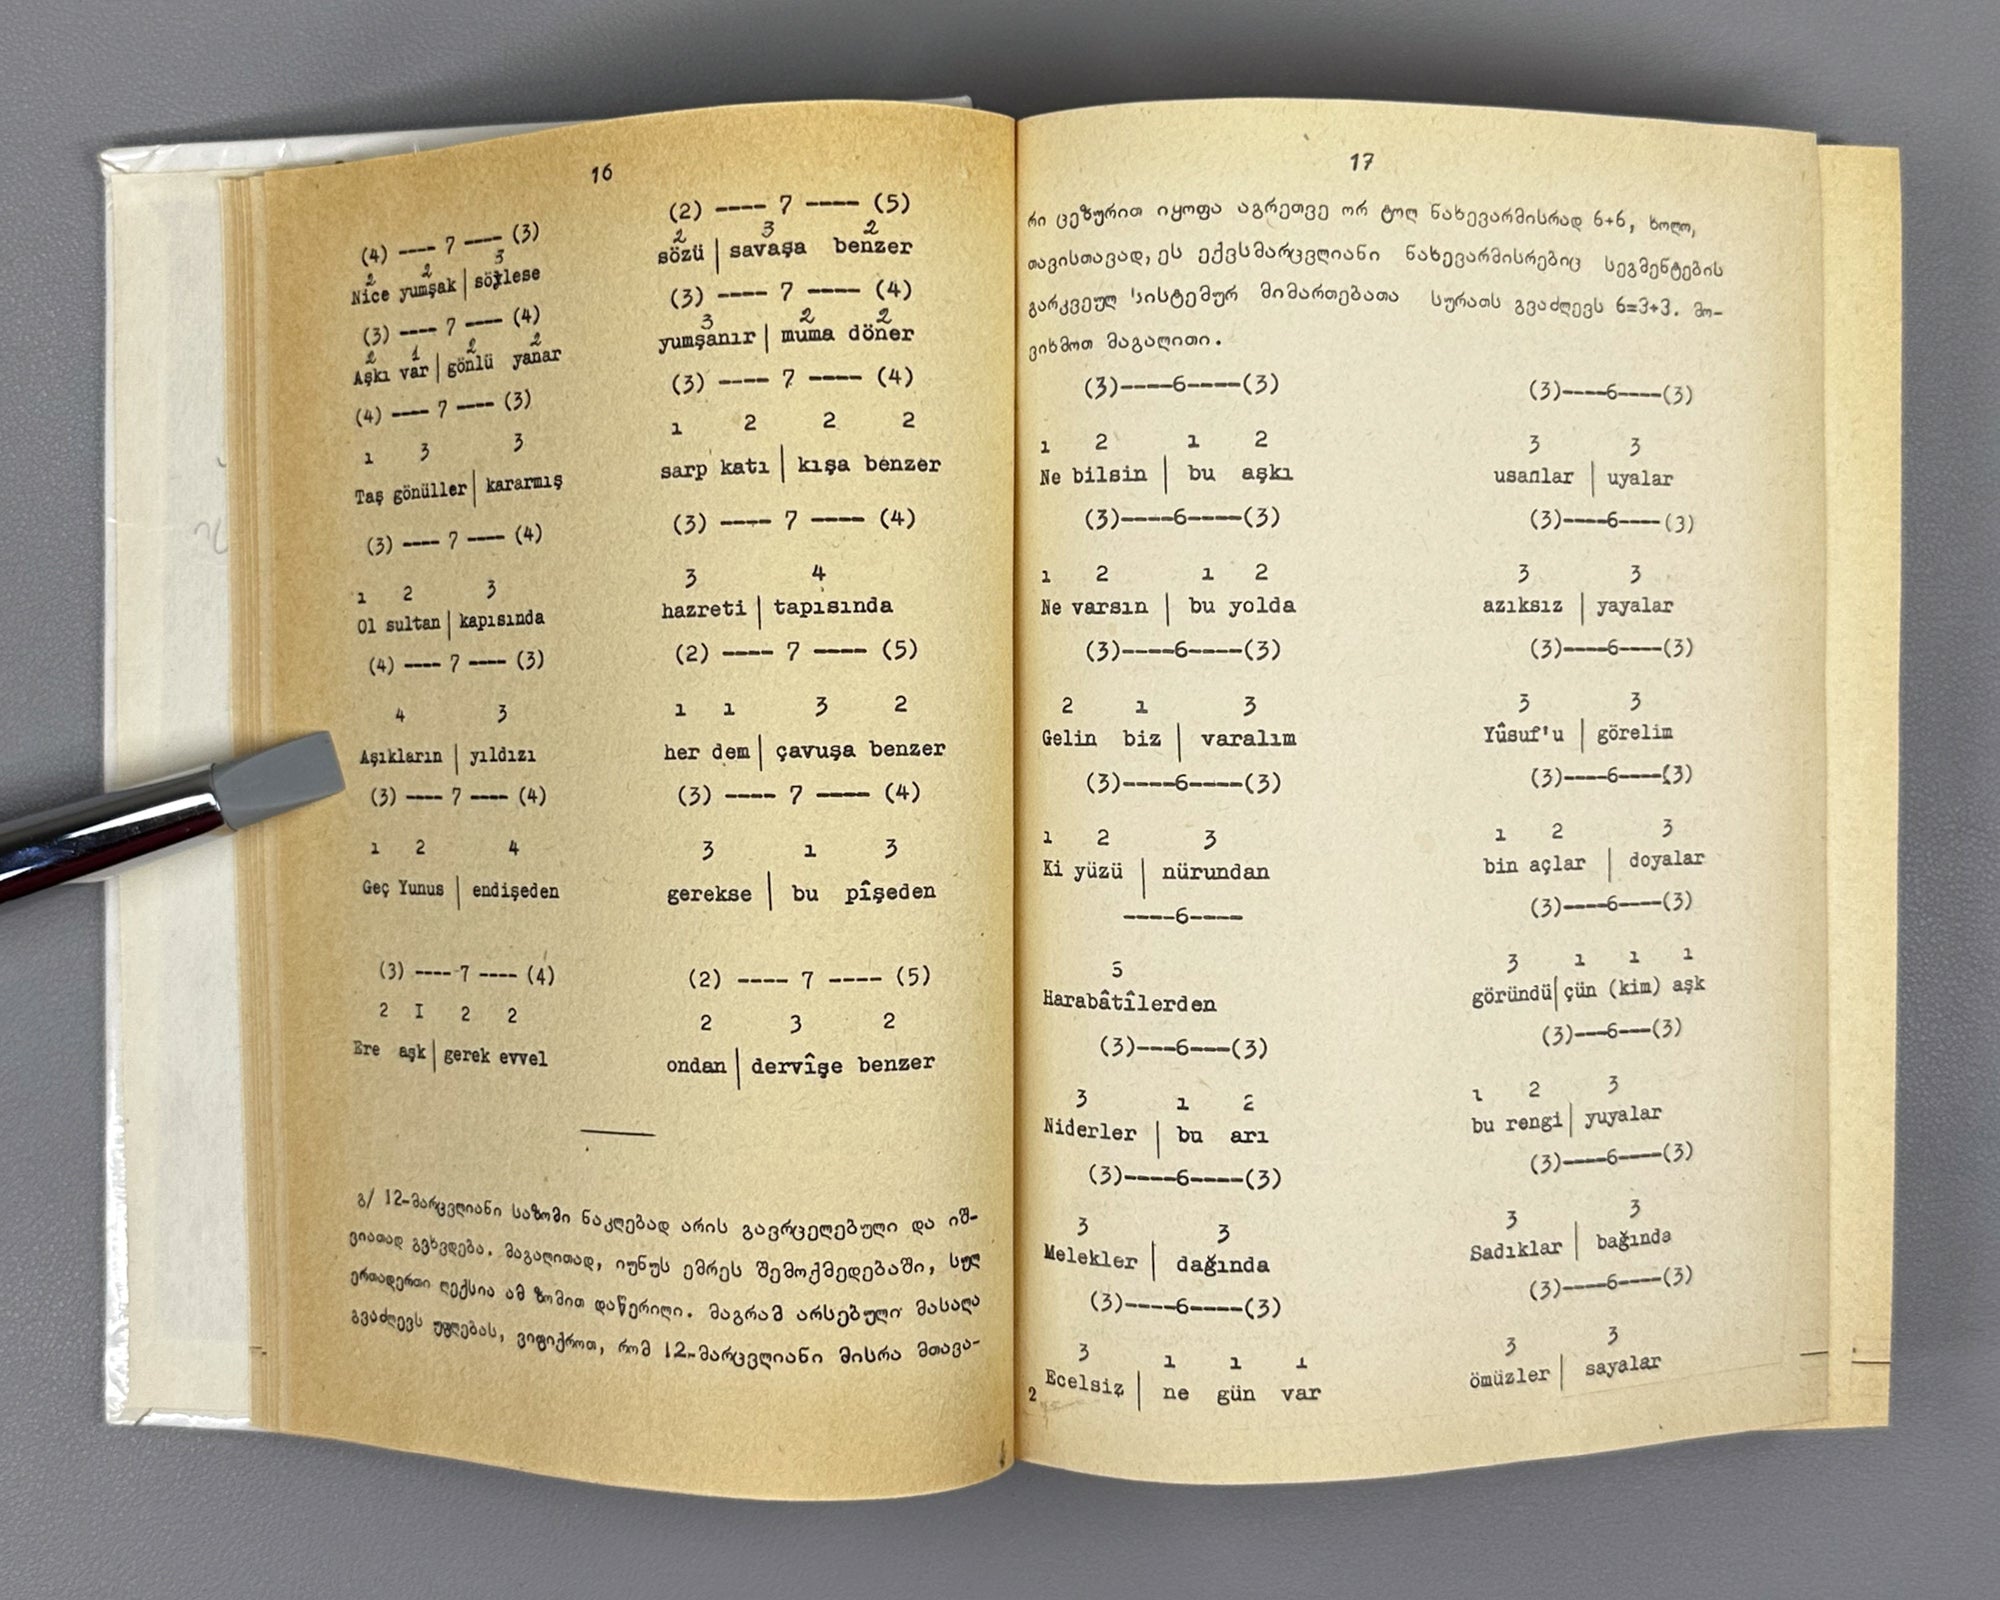 16
(4) ---- 7 ---- (3) (2) ---- 7 ---- (5)
2 2 3 2 3 2
Nice yumşak | söylese sözü | savaşa benzer
(3) ---- 7 ---- (4) (3) ---- 7 ---- (4)
2 1 2 2 3 2 2
Aşkı var | gönlü yanar yumşanır | muma döner
(4) ---- 7 ---- (3) (3) ---- 7 ---- (4)
1 3 3 1 2 2 2
Taş gönüller | kararmış sarp katı | kışa benzer
(3) ---- 7 ---- (4) (3) ---- 7 ---- (4)
1 2 3 3 4
Ol sultan | kapısında hazreti | tapısında
(4) ---- 7 ---- (3) (2) ---- 7 ---- (5)
4 3 1 1 3 2
Aşıkların | yıldızı her dem | çavuşa benzer
(3) ---- 7 ---- (4) (3) ---- 7 ---- (4)
1 2 4 3 1 3
Geç Yunus | endişeden gerekse | bu pîşeden
(3) ---- 7 ---- (4) (2) ---- 7 ---- (5)
2 I 2 2 2 3 2
Ere aşk | gerek evvel ondan | dervîşe benzer
გ/ 12-მარცვლიანი საზომი ნაკლებად არის გავრცელებული და იშ-
ვიათად გვხვდება. მაგალითად, იუნუს ემრეს შემოქმედებაში, სულ
ერთადერთი ლექსია ამ ზომით დაწერილი. მაგრამ არსებული მასალა
გვაძლევს უფლებას, ვიფიქროთ, რომ 12-მარცვლიანი მისრა მთავა-
17
რი ცეზურით იყოფა აგრეთვე ორ ტოლ ნახევარმისრად 6+6, ხოლო,
თავისთავად, ეს ექვსმარცვლიანი ნახევარმისრებიც სეგმენტების
გარკვეულ სისტემურ მიმართებათა სურათს გვაძლევს 6=3+3. მო-
ვიხმოთ მაგალითი.
(3)----6----(3) (3)----6----(3)
1 2 1 2 3 3
Ne bilsin | bu aşkı usanlar | uyalar
(3)----6----(3) (3)----6----(3)
1 2 1 2 3 3
Ne varsın | bu yolda azıksız | yayalar
(3)----6----(3) (3)----6----(3)
2 1 3 3 3
Gelin biz | varalım Yûsuf'u | görelim
(3)----6----(3) (3)----6----(3)
1 2 3 1 2 3
Ki yüzü | nürundan bin açlar | doyalar
----6---- (3)----6----(3)
5 3 1 1 1
Harabâtîlerden göründü | çün (kim) aşk
(3)---6---(3) (3)---6---(3)
3 1 2 1 2 3
Niderler | bu arı bu rengi | yuyalar
(3)----6----(3) (3)----6----(3)
3 3 3 3
Melekler | dağında Sadıklar | bağında
(3)----6----(3) (3)----6----(3)
3 1 1 1 3 3
Ecelsiz | ne gün var ömüzler | sayalar
2